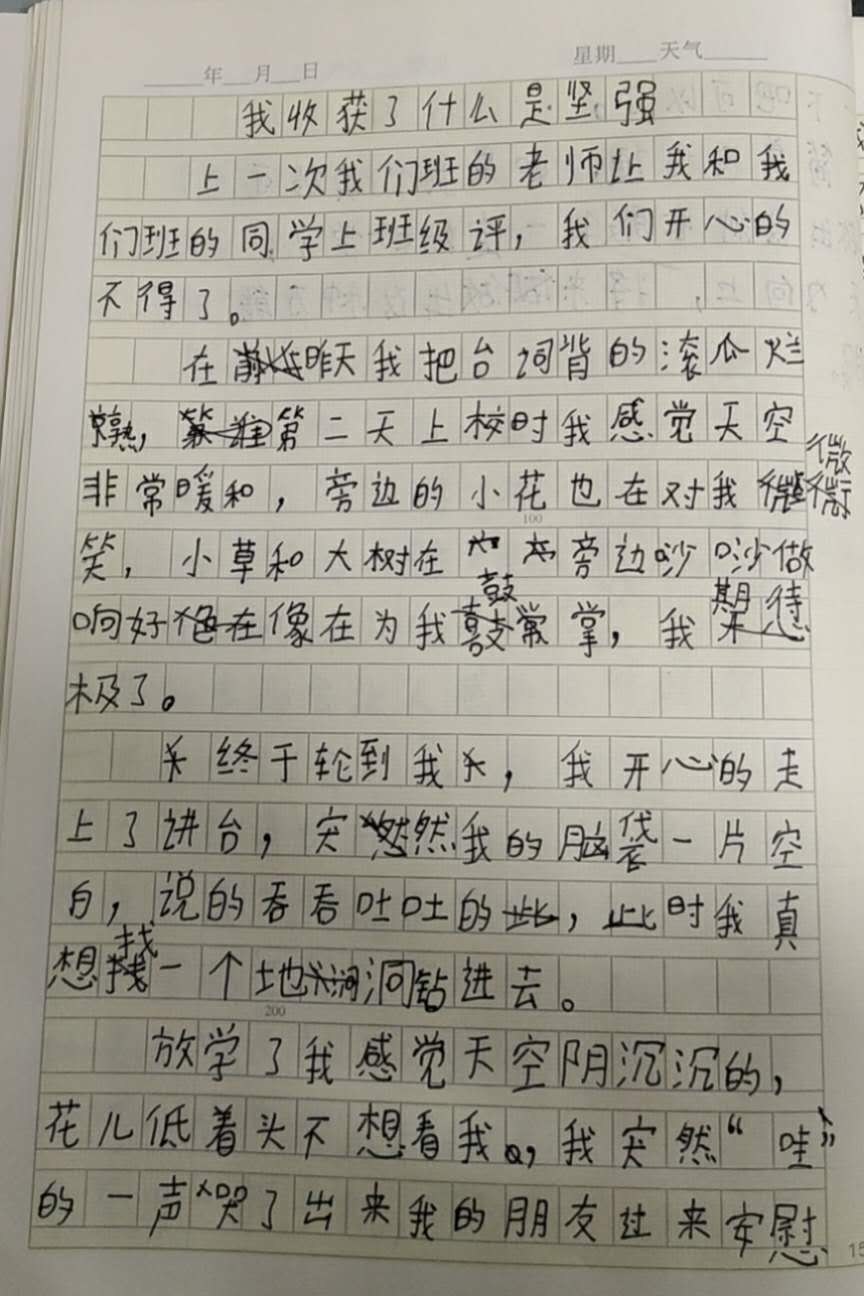 年 月 日 星期 天气
我收获了什么是坚强
上一次我们班的老师让我和我
们班的同学上班级评，我们开心的
不得了。
在昨天我把台词背的滚瓜烂
熟，第二天上校时我感觉天空
非常暖和，旁边的小花也在对我微
笑，小草和大树在旁边吵吵做
100
响好像在为我鼓掌，我期待
极了。
终于轮到我，我开心的走
上了讲台，突然我的脑袋一片空
白，说的吞吞吐吐的，此时我真
想找一个地洞钻进去。
200
放学了我感觉天空阴沉沉的，
花儿低着头不想看我，我突然“哇”
的一声哭了出来我的朋友过来安慰
15